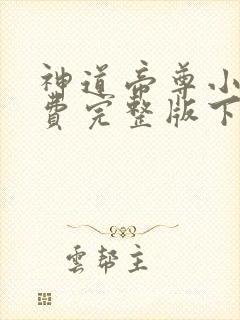 神道帝尊小
費完整版下
雲幫主